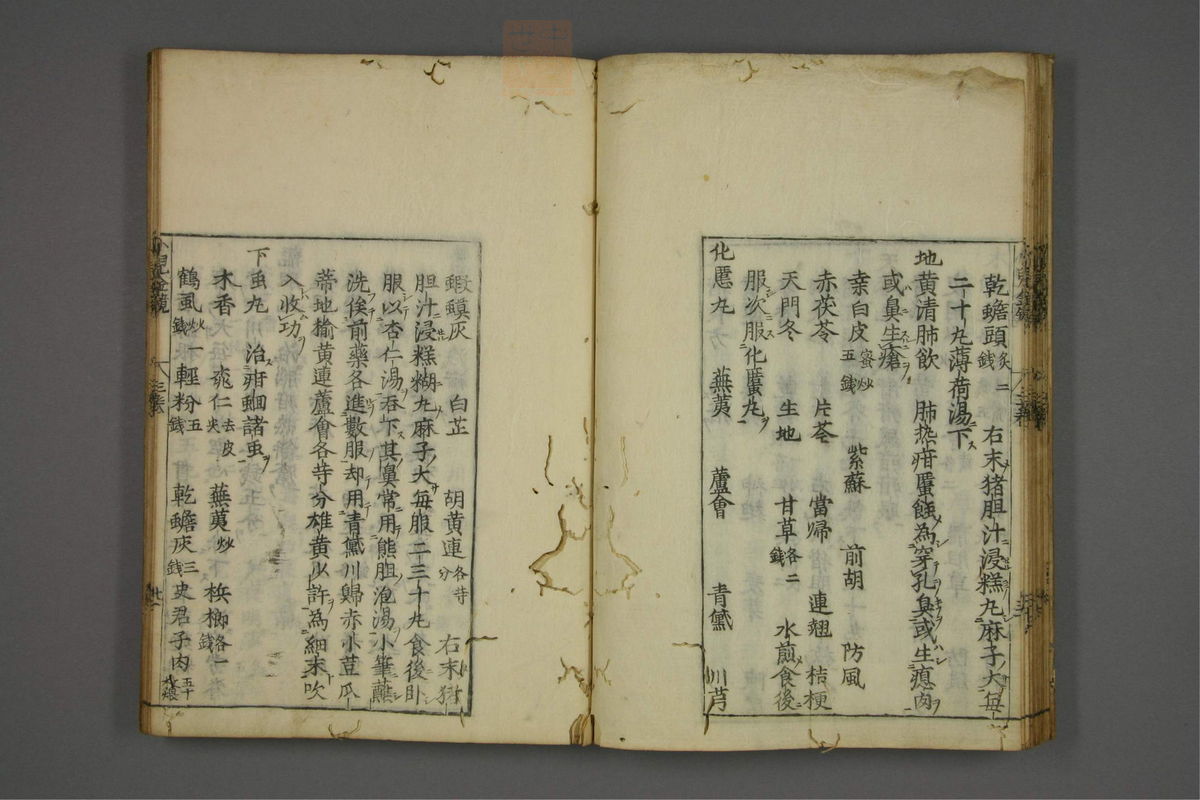 乾蟾頭 炙二錢 右末猪胆汁浸糕丸麻子大每
二十丸薄荷湯下
地黄清肺飲 肺热疳䘌蝕為穿孔臭或生瘜肉
或臭生瘡
桒白皮 蜜炒五錢 紫蘇 前胡 防風
赤茯苓 片芩 當帰 連翹 桔梗
天門冬 生地 甘草 各二錢 水煎食後
服次服化䘌丸
化䘌丸 蕪荑 蘆會 青黛 川芎
蝦蟆灰 白芷 胡黄連 各等分 右末猪
胆汁浸糕糊丸麻子大每服二三十丸食後卧
服以杏仁湯吞下其鼻常用熊胆泡湯小筆蘸
洗俟前藥各進數服却用青黛川歸赤小荳瓜
蒂地榆黄連蘆會各等分雄黄少許為細末吹
入收功
下虫丸 治疳蛔諸虫
木香 去皮尖 蕪荑 炒 梹榔 各一錢
鶴虱 炒一錢 輕粉 五錢 乾蟾灰 三錢 史君子肉 五十